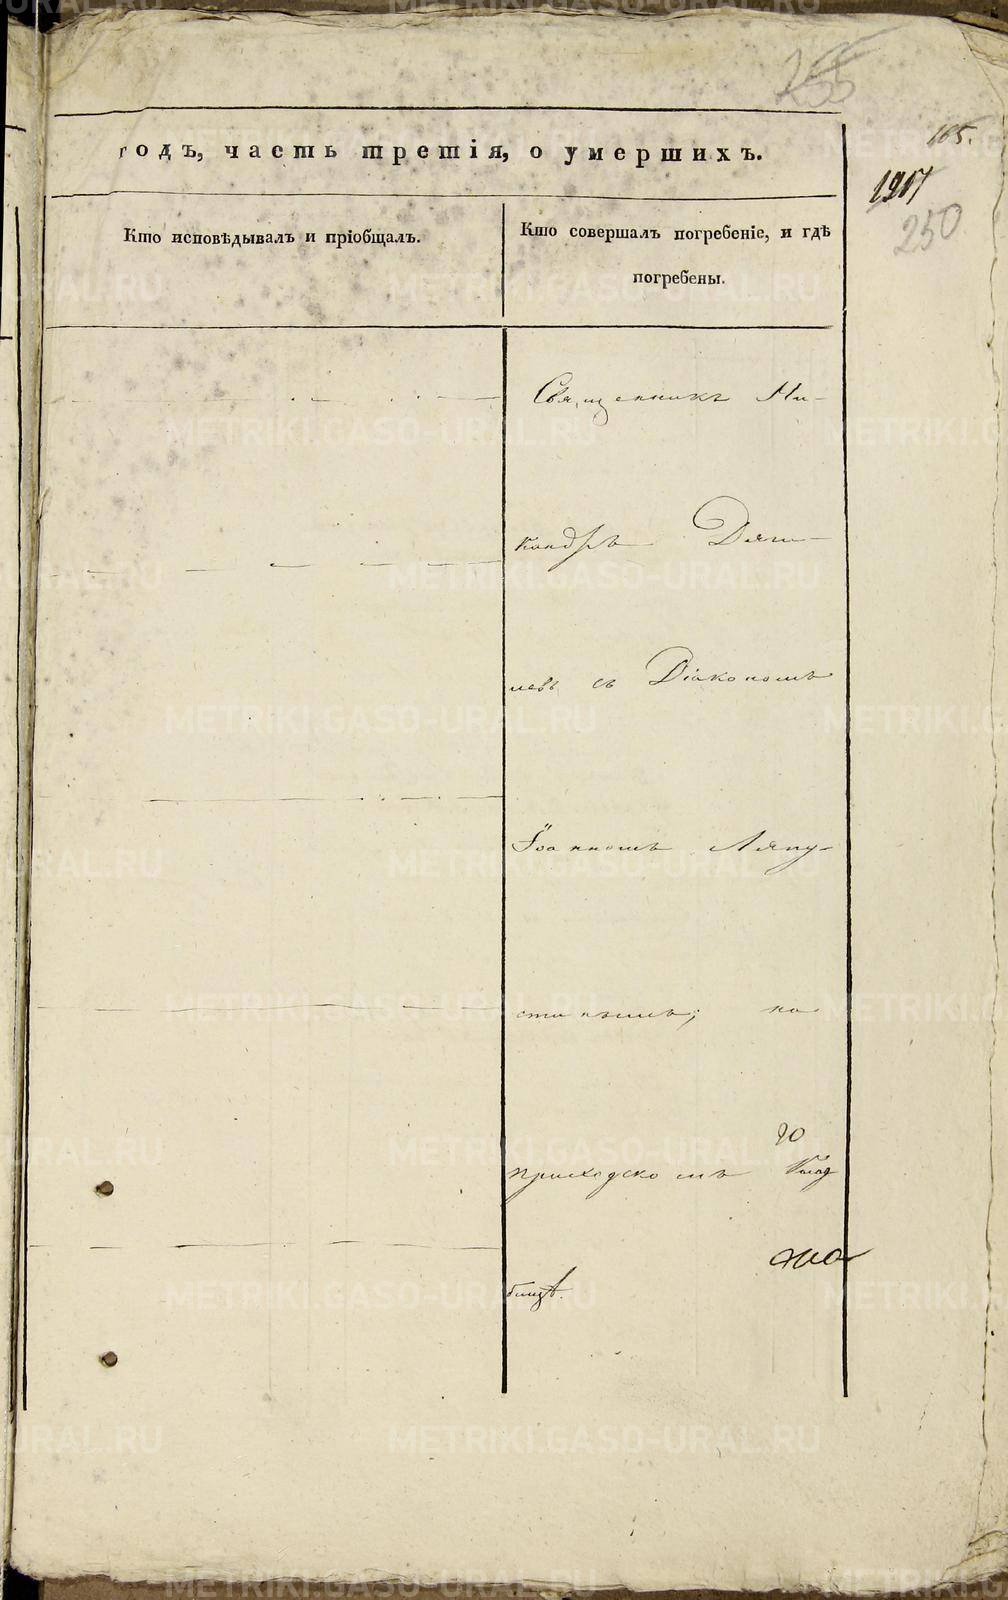 255
165.
годъ, часть третія, о умершихъ.
1217
250
Кто исповѣдывалъ и пріобщалъ.
Кто совершалъ погребеніе, и гдѣ
погребены.
Священникъ Ни-
кандръ Дяги-
левъ съ Діакономъ
Іоанномъ Ляпу-
стинымъ; на
приходскомъ Клад
бищѣ.
METRIKI.GASO-URAL.RU